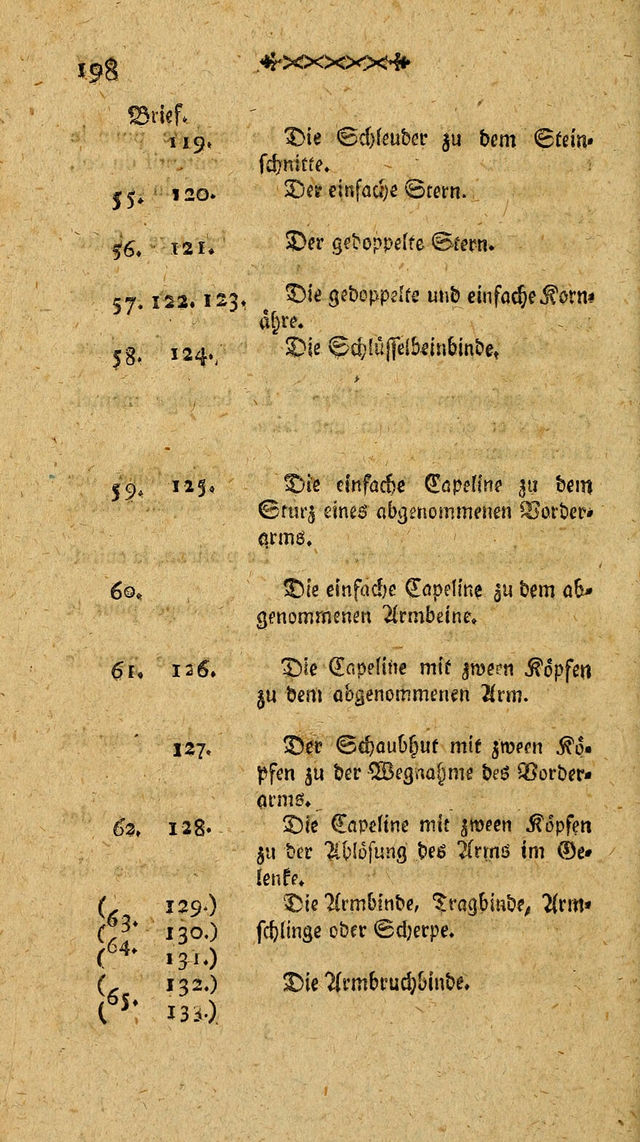 198
Brief.
119. Die Schleuder zu dem Stein-
schnitte.
55. 120. Der einfache Stern.
56. 121. Der gedoppelte Stern.
57. 122. 123. Die gedoppelte und einfache Korn-
ähre.
58. 124. Die Schlüsselbeinbinde.
59. 125. Die einfache Capeline zu dem
Sturz eines abgenommenen Vorder-
arms.
60. Die einfache Capeline zu dem ab-
genommenen Armbeine.
61. 126. Die Capeline mit zween Köpfen
zu dem abgenommenen Arm.
127. Der Schaubhut mit zween Kö-
pfen zu der Wegnahme des Vorder-
arms.
62. 128. Die Capeline mit zween Köpfen
zu der Ablösung des Arms im Ge-
lenke.
( 129.) Die Armbinde, Tragbinde, Arm-
63.
( 130.) schlinge oder Scherpe.
64.
( 131.)
( 132.) Die Armbruchbinde.
65.
( 133.)